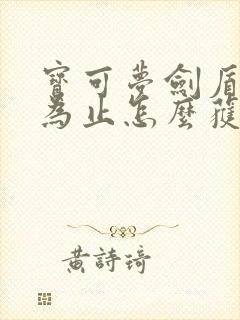 寶可夢劍盾
為止怎麼獲
黃詩琦